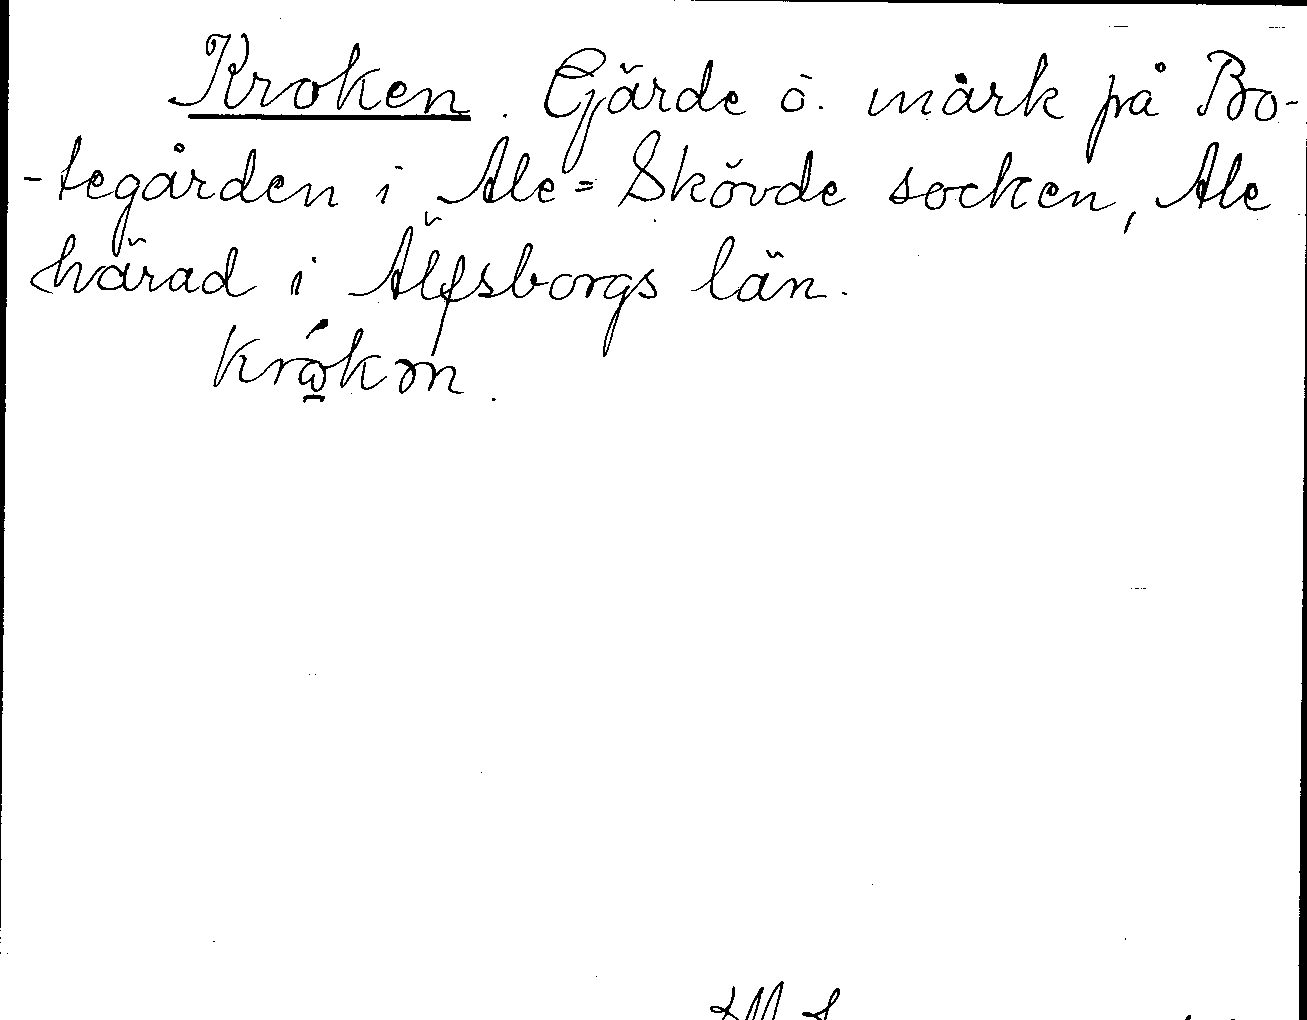 Kroken. Gärde ö. mark på Bo-
-tegården i Ale=Skövde socken, Ale
härad i Älfsborgs län.